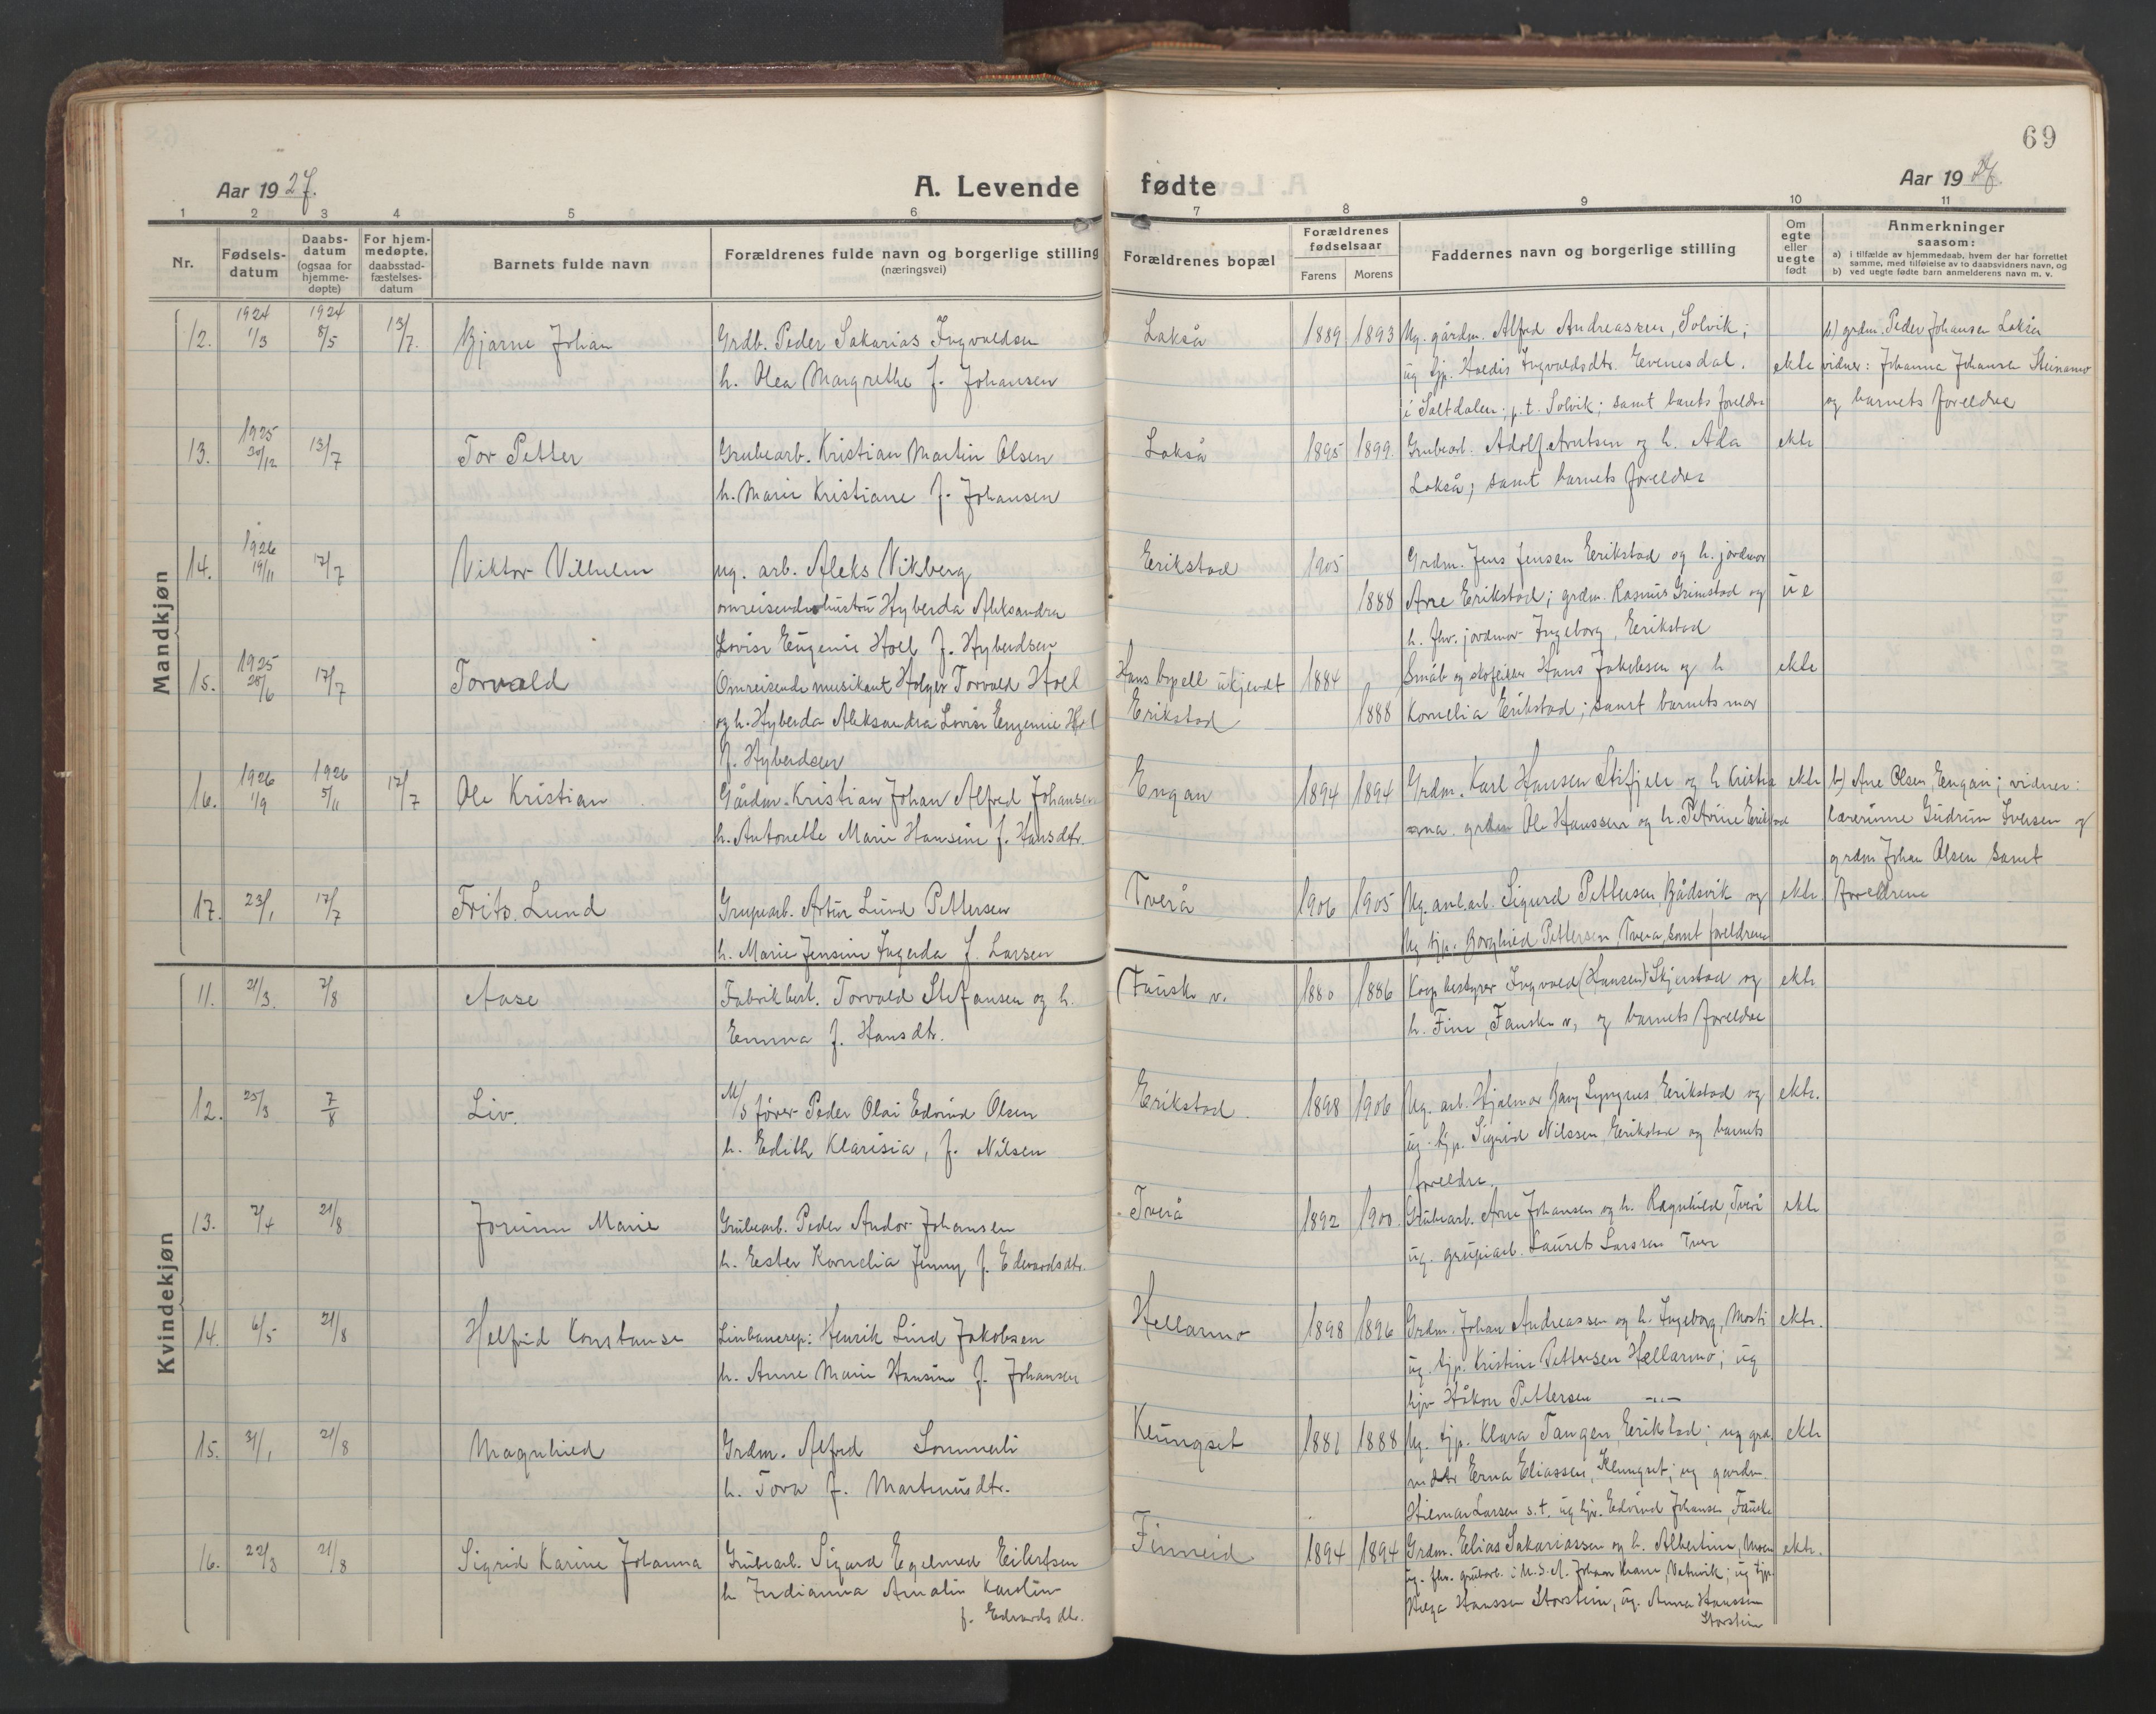 69
Aar 1927.
A. Levende fødte
Aar 1927.
1 2 3 4 5 6 7 8 9 10 11
Nr.
Fødsels-
datum
Daabs-
datum
(ogsaa for
hjemme-
døpte)
For hjem-
medøpte,
daabsstad-
fæstelses-
datum
Barnets fulde navn
Forældrenes fulde navn og borgerlige stilling
(næringsvei)
Forældrenes bopæl
Forældrenes
fødselsaar
Farens Morens
Faddernes navn og borgerlige stilling
Om
egte
eller
uegte
født
Anmerkninger
saasom:
a) i tilfælde av hjemmedaab, hvem der har forrettet
samme, med tilføielse av to daabsvidners navn, og
b) ved uegte fødte barn anmelderens navn m. v.
Mandkjøn
12. 1924 1/3 1924 8/5 13/7. Bjarne Johan
Grdb. Peder Sakarias Ingvaldsen
h. Olea Margrethe f. Johansen
Lakså 1889 1893
Ug. gårdm. Alfred Andreassen, Solvik;
ug tjp. Hordis Ingvaldsdtr. Evenesdal.
i Saltdalen. p.t. Solvik; samt barets foreldre
ekte
b) grdm. Peder Johansen Lakså
vidner: Johanna Johansen Steinamo
og barnets foreldre
13. 1925 30/12 13/7 Tor Petter
Grubearb. Kristian Martin Olsen
h. Marie Kristiane f. Johansen
Lakså 1895 1899.
Grubearb. Adolf Arntsen og h. Ada
Lakså; samt barnets foreldre
ekte
14. 1926 19/11 17/7 Viktor Vilhelm
ug. arb. Aleks Vikberg
omreisendes hustru Hyberda Aleksandra
Lovise Eugenie Hoel f. Hyberdsen
Erikstad 1905
1888
Grdm. Jens Jensen Erikstad og h. jordmor
Arre Erikstad; grdm. Rasmus Grimstad og
h. fhv. jordmor Ingeborg, Erikstad
u e
15. 1925 28/6 17/7 Torvald
Omreisende musikant Holger Torvald Hoel
og h. Hyberda Aleksandra Lovise Eugenie Hoel
f. Hyberdsen
Hans bopell ukjendt 1884
Erikstad 1888
Småb og skofliker Hans Jakobsen og h
Kornelia Erikstad; samt barnets mor
ekte
16. 1926 1/9 1926 5/11 17/7 Ole Kristian
Gårdm. Kristian Johan Alfred Johansen
h. Antonette Marie Hansine f. Hansdtr.
Engan 1894 1894
Grdm. Karl Hansen Stifjell og h Kristi
ana. grdm Ole Hanssen og h. Petrine Erikstad
ekte
b) Arne Olsen, Engan; vidner:
lærerinne Gudrun Iversen og
grdm Johan Olsen samt
foreldrene
17. 23/1 17/7 Frits Lund
Grupearb. Artur Lund Pettersen
h. Marie Jensine Ingerda f. Larsen
Tverå 1906 1905
Ug. anl.arb. Sigurd Pettersen, Bådsvik og
Ug tjp. Borghild Pettersen, Tverå, samt foreldrene
ekte
Kvindekjøn
11. 21/3. 7/8 Aase
Fabrikbest. Torvald Stefansen og h.
Emma f. Hansdtr.
Fauske v. 1880 1886
Koop. bestyrer Ingvald (Hansen) Skjerstad og
h. Fine, Fauske v, og barnets foreldre
ekte
12. 25/3 7/8 Liv.
M/S fører Peder Olai Edvind Olsen
h. Edith Klarisia, f. Nilsen
Erikstad. 1898 1906
Ug. arb. Hjalmar Bang Lyngnes Erikstad og
ug. tjp. Sigrid Nilssen Erikstad og barnets
foreldre.
ekte.
13. 7/4 21/8 Jorunn Marie
Grubearb. Peder Andor Johansen
h. Ester Kornelia Jenny f. Edvardsdtr.
Tverå 1892 1900.
Grubearb. Arne Johansen og h. Ragnhild, Tverå
ug. grupearb. Laurits Larssen Tverå
ekte
14. 6/5 21/8 Helfrid Konstanse
Linbanerep: Henrik Lind Jakobsen
h. Anne Marie Hansine f. Johansen
Hellarmo 1898 1896
Grdm. Johan Andreassen og h. Ingeborg, Mosti
ug. tjp. Kristine Pettersen Hellarmo; ug
tjv Håkon Pettersen -"-
ekte.
15. 31/1 21/8 Magnhild
Grdm. Alfred Sommerli
h. Tora f. Martinusdtr.
Klungset 1881 1888
Ug. tjp. Klara Tangen, Erikstad; ug grd.
mdtr Erna Eliassen, Klungset; ug gardm.
Hilmar Larsen s.t. ug tjv. Edvind Johansen, Fauske
ekte
16. 22/3 21/8 Sigrid Karine Johanna
Grubearb. Sigurd Egelmed Eilertsen
h Indianna Amalie Karoline
f. Edvardsdtr.
Finneid 1894 1894
Grdm. Elias Sakariassen og h. Albertine, Moen
ug. fhv. grubarb. i U.S.A. Johan Kram, Vatnvik; ug tjp.
Helga Hanssen Storstein, ug. Anna Hanssen
Storstein
ekte.